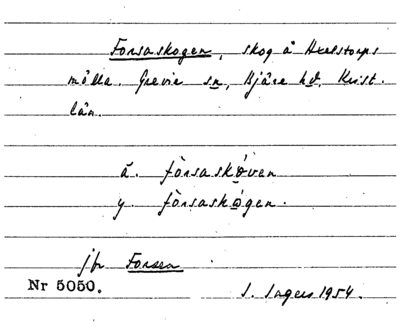 Forsaskogen, skog å Axelstorps
mölla. Grevie sn, Bjäre hd, Krist.
län.
ä. fòrsaskǿven
y. fòrsaskǿgen.
jfr Forsen
Nr 5050.
S. Ingers 1954.